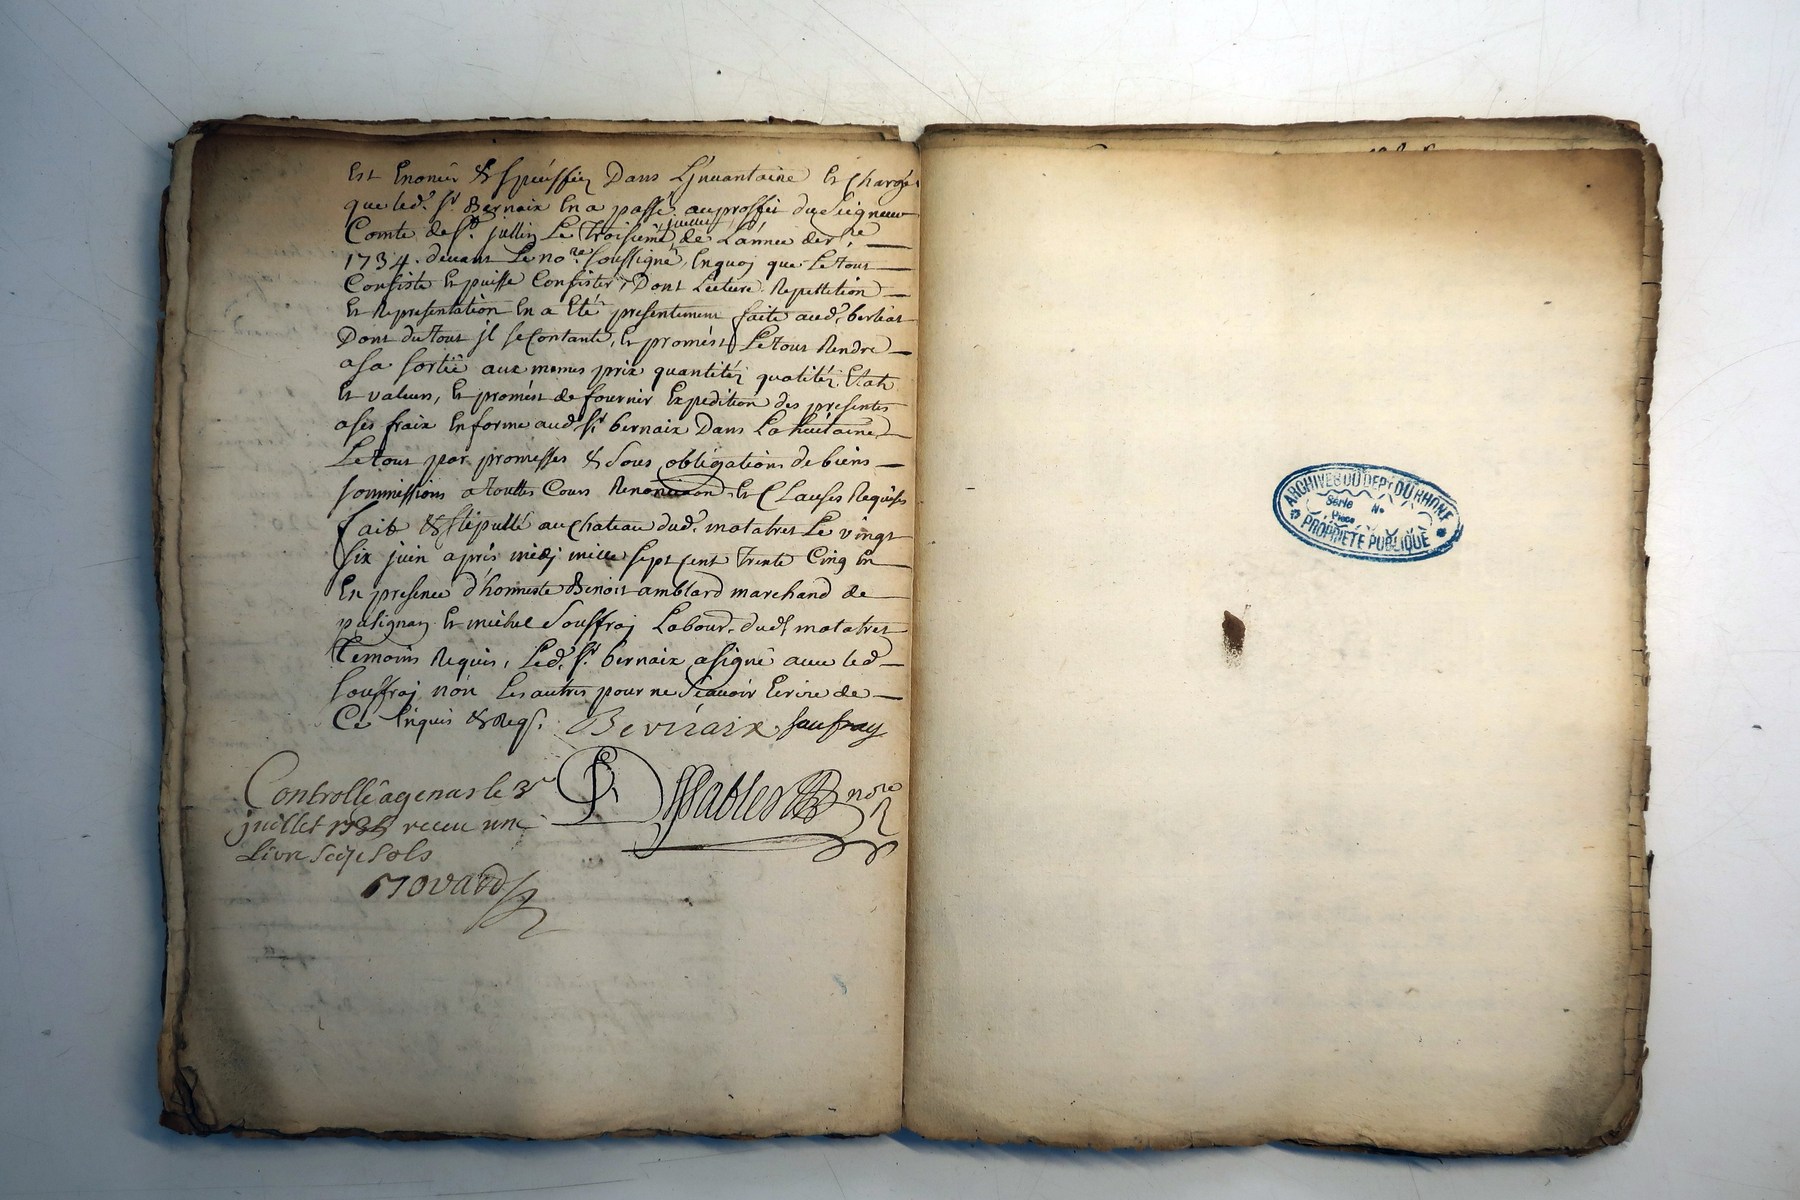 Est Enoncée & speciffiée Dans L'jnvantaire Et Charge
que led. Sr. Bernaix En a passé au proffit du Seigneur
Comte de St. jullin Le Troisieme juillet de L'année derre.
1734. devant Le nore. soussigné, En quoj que Le tout
Consiste Et puisse Consister, Dont Lecture Repettition
Et Representation En a Eté presentement faite aud. berliat
Dont du tout jl se Contante, Et promést Le tout Rendre
a sa sortie aux memes prix quantités qualités, Etats
Et valeurs, Et promést de fournir Expedition des presentes
a ses fraix En forme aud. Sr. bernaix Dans La huitaine,
Le tout par promesses & Sous obligations de biens
sommissions a touttes Cours Renonciaon. Et Clauses Requises
fait & stipullé au Chateau dud. matatret Le vingt
six juin aprés midj mille sept cent Trente Cinq En
En presence d'honneste Benoit amblard marchand de
pusignan Et michel Souffraj Labour. dud. matatret
temoins Requis, Led. Sr. bernaix a signé avec led.
Souffraj non Les autres pour ne Scavoir Ecrire de
Ce Enquis & Reqs.
Bernaix saufray
Controllé a genas le 3e
juillet 1735 receu une
Livre Seize Sols
nore
ARCHIVES DU DEPT DU RHÔNE
Série No
Pièce
PROPRIÉTÉ PUBLIQUE